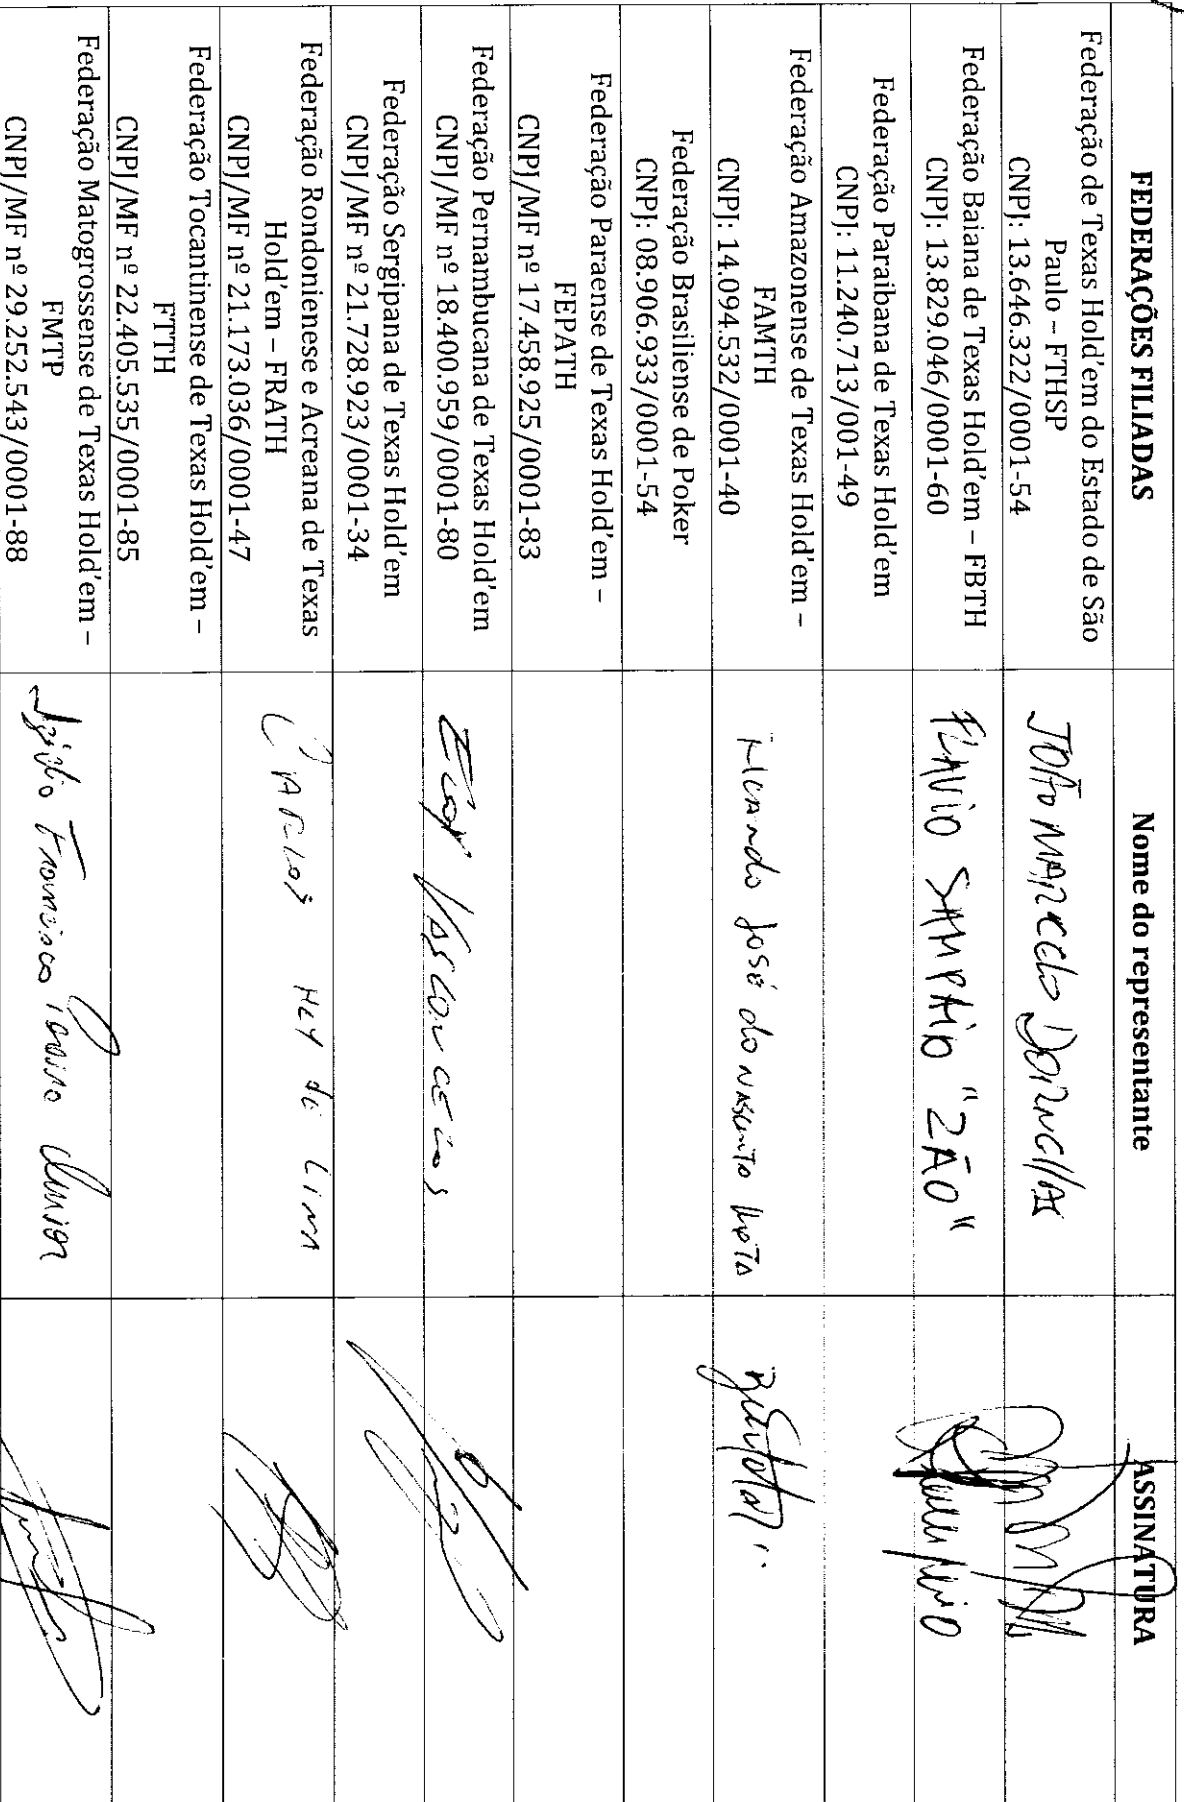 FEDERAÇÕES FILIADAS
Nome do representante
ASSINATURA
Federação de Texas Hold'em do Estado de São
Paulo – FTHSP
CNPJ: 13.646.322/0001-54
JOÃO MARCELO
Federação Baiana de Texas Hold'em – FBTH
CNPJ: 13.829.046/0001-60
FLAVIO SAMPAIO "ZÃO"
Federação Paraibana de Texas Hold'em
CNPJ: 11.240.713/001-49
Federação Amazonense de Texas Hold'em –
FAMTH
CNPJ: 14.094.532/0001-40
José do
Federação Brasiliense de Poker
CNPJ: 08.906.933/0001-54
Federação Paraense de Texas Hold'em –
FEPATH
CNPJ/MF nº 17.458.925/0001-83
Federação Pernambucana de Texas Hold'em
CNPJ/MF nº 18.400.959/0001-80
VASCONCELOS
Federação Sergipana de Texas Hold'em
CNPJ/MF nº 21.728.923/0001-34
Federação Rondoniense e Acreana de Texas
Hold'em – FRATH
CNPJ/MF nº 21.173.036/0001-47
CARLOS de Lima
Federação Tocantinense de Texas Hold'em –
FTTH
CNPJ/MF nº 22.405.535/0001-85
Federação Matogrossense de Texas Hold'em –
FMTP
CNPJ/MF nº 29.252.543/0001-88
Francisco Junior